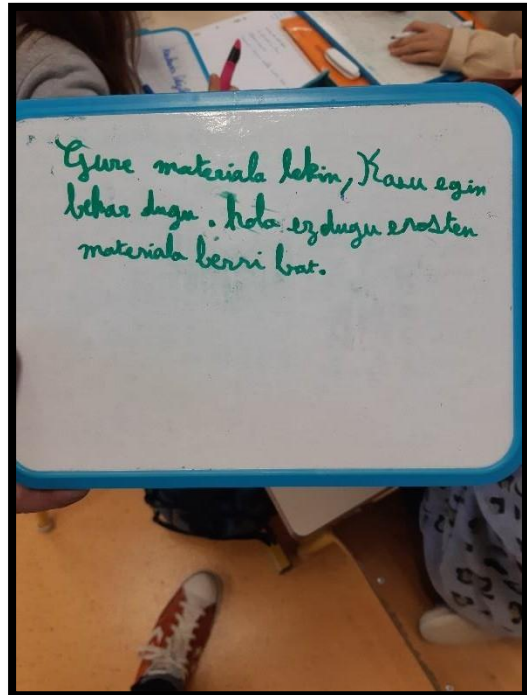 Gure materiala lekin, Kasu egin
behar dugu. hola ez dugu erosten
materiala berri bat.